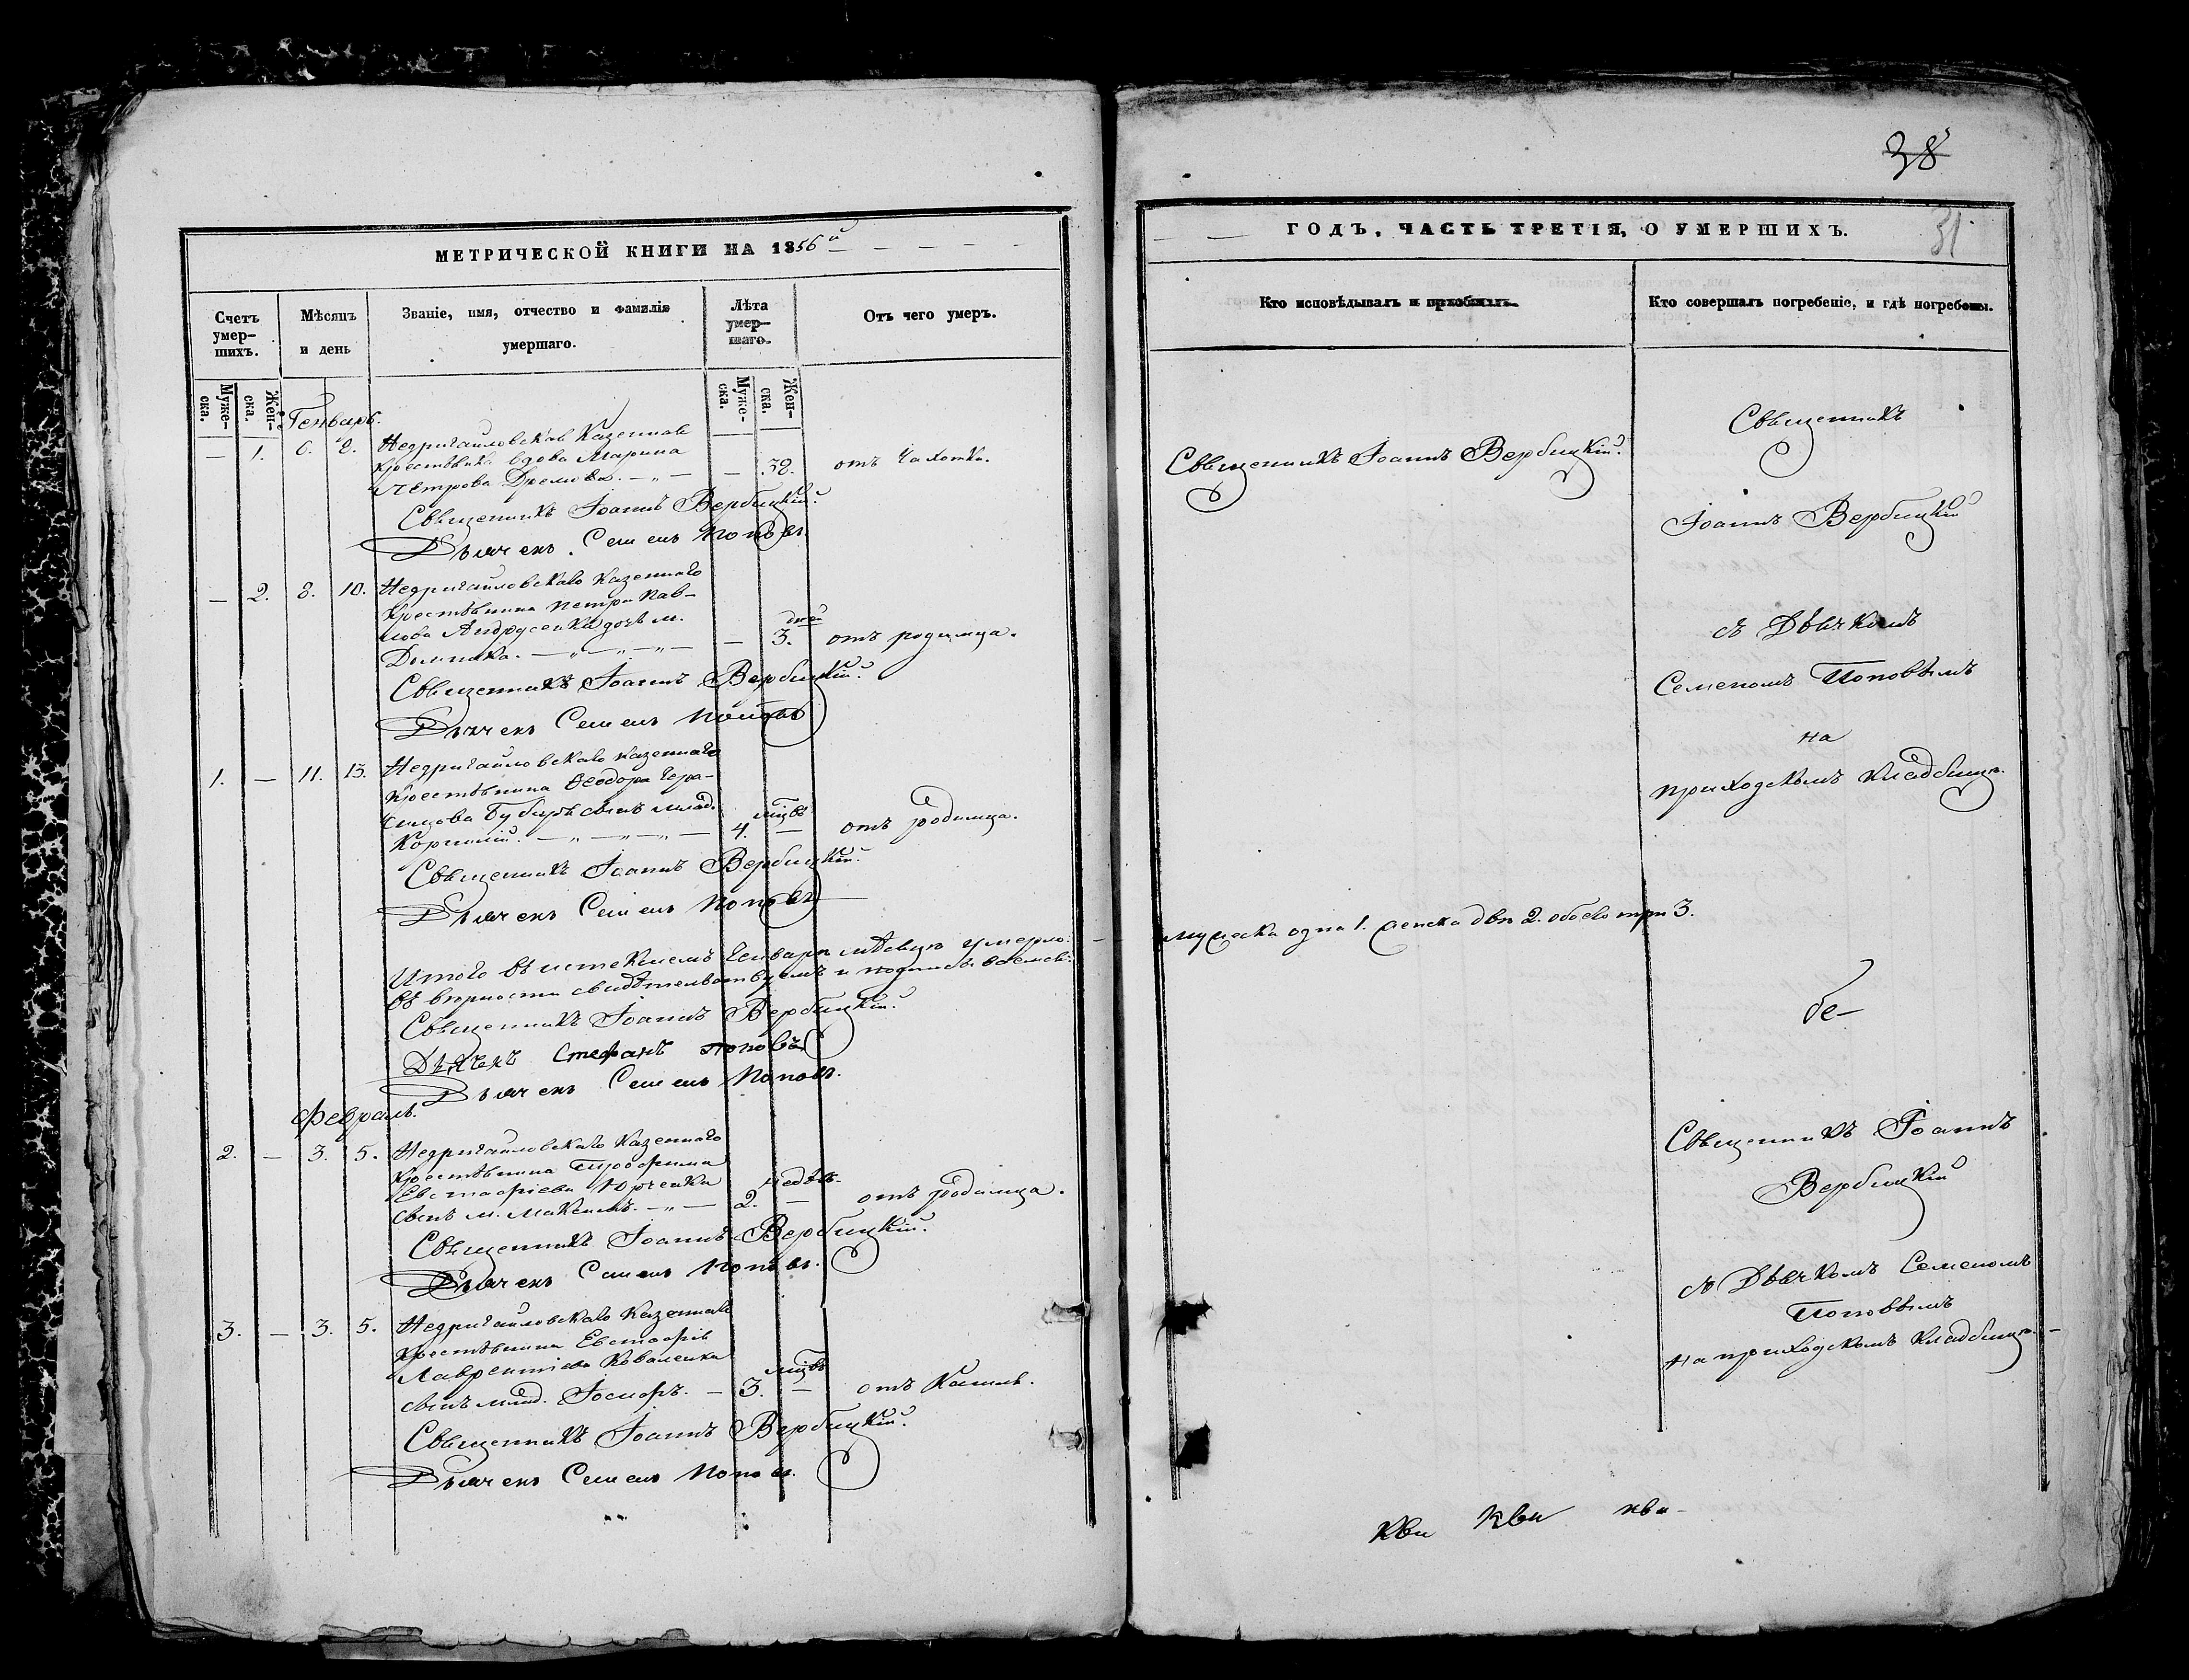 МЕТРИЧЕСКОЙ КНИГИ НА 1856й
Счетъ умер-шихъ.
Мѣсяцъ и день
Званіе, имя, отчество и фамилія умершаго.
Лѣта умер-шаго.
Отъ чего умеръ.
Муже-ска.
Жен-ска.
Муже-ска.
Жен-ска.
Генварь.
— 1. 6. 8. Недригайловская Казенная
крестьянка вдова Марина
Петрова — 38. отъ чахотки.
Священникъ Іоаннъ Вербицкій.
Дьячекъ Семенъ Поповъ.
— 2. 8. 10. Недригайловскаго Казеннаго
Крестьянина Петра Пав-
лова Андрусенка дочь м.
Домника. — 3. дней отъ родимца.
Священникъ Іоаннъ Вербицкій.
Дьячекъ Семенъ Поповъ
1. — 11. 13. Недригайловскаго казеннаго
крестьянина Ѳеодора Гера-
симова сынъ млад.
Корнилій. 4. мцвъ — отъ родимца.
Священникъ Іоаннъ Вербицкій.
Дьячекъ Семенъ Поповъ
Итого въ истекшемъ Генварѣ мѣсяцѣ умерло:
въ вѣрности свидѣтельствуемъ и
Священникъ Іоаннъ Вербицкій.
Дьячекъ Стефанъ поповъ
Дьячекъ Семенъ Поповъ.
Февраль.
2. — 3. 5. Недригайловскаго Казеннаго
Крестьянина Трофима
Евстафіева Юрченка
сынъ м. Максимъ. 2. недѣль — отъ родимца.
Священникъ Іоаннъ Вербицкій.
Дьячекъ Семенъ Поповъ.
3. — 3. 5. Недригайловскаго Казеннаго
Крестьянина Евстафія
Лаврентіева Коваленка
сынъ млад. Іосифъ. — 3. мцвъ — отъ Кашля.
Священникъ Іоаннъ Вербицкій.
Дьячекъ Семенъ Поповъ.
38
31
ГОДЪ, ЧАСТЬ ТРЕТІЯ, О УМЕРШИХЪ.
Кто исповѣдывалъ и пріобщалъ.
Кто совершалъ погребеніе, и гдѣ погребены.
Священникъ Іоаннъ Вербицкій.
Священникъ
Іоаннъ Вербицкій
съ Дьячкомъ
Семеномъ Поповымъ
на
приходскомъ кладбищѣ.
мужеска одна 1. женска двѣ 2. обоего три 3.
Священникъ Іоаннъ
Вербицкій
съ Дьячкомъ Семеномъ
Поповымъ
на приходскомъ кладбищѣ.